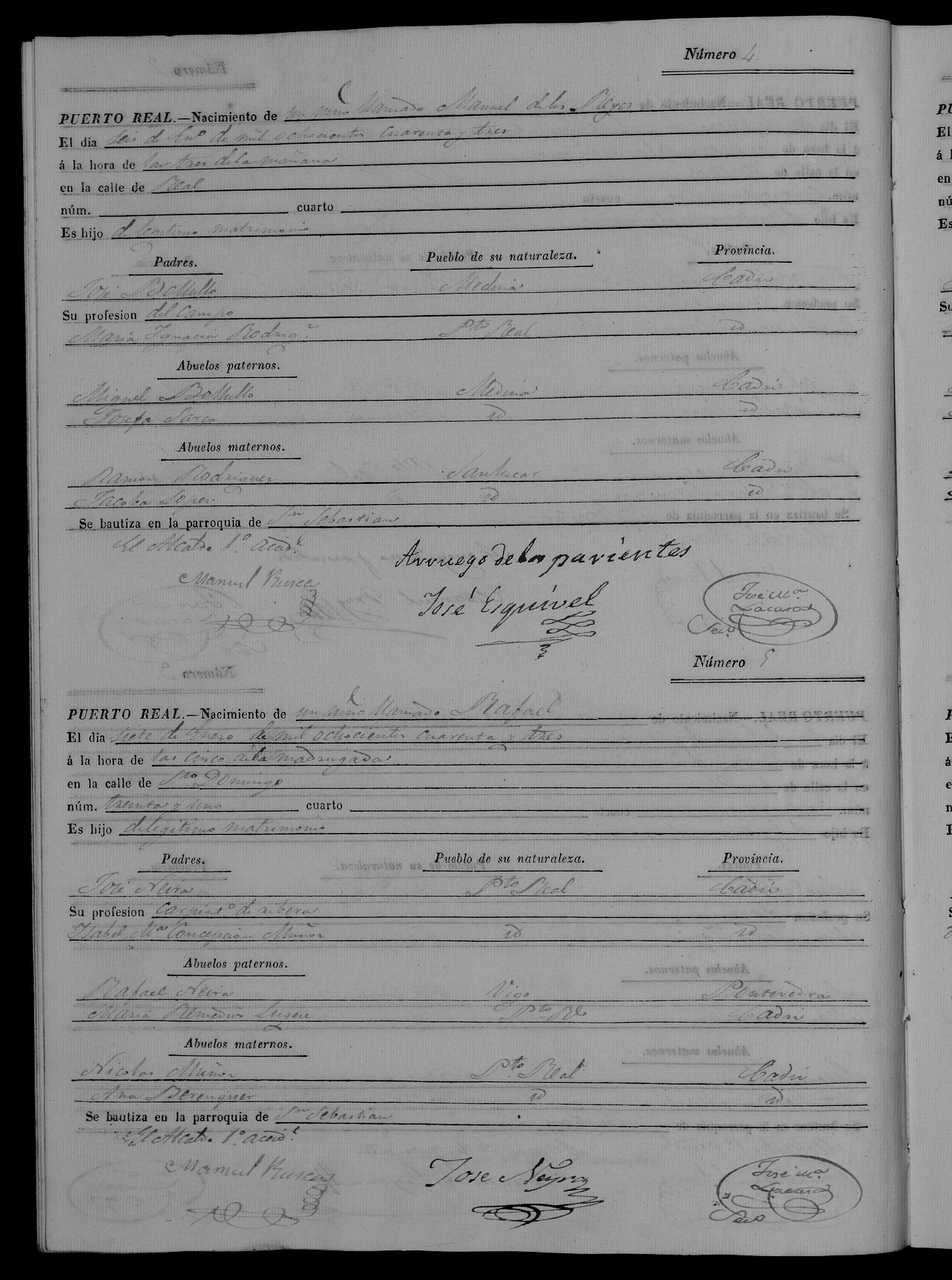 Número 4
PUERTO REAL.—Nacimiento de un niño llamado Manuel de los Reyes
El dia seis de En.º de mil ochocientos cuarenta y tres
á la hora de las tres de la mañana
en la calle de Real
núm. cuarto
Es hijo de lexitimo matrimonio
Padres. Pueblo de su naturaleza. Provincia.
José Medina Cadiz
Su profesion del Campo
Maria Ignacia Rodrig.z Pto Real id
Abuelos paternos.
Miguel Medina Cadiz
Josefa id id
Abuelos maternos.
Ramon Rodriguez Sanlucar Cadiz
Jacoba Lopez id id
Se bautiza en la parroquia de Sn Sebastian
El Alcalde 1.º
Arruego de los parientes
Manuel
José Esquivel
José Ma.
Secº
Número 5
PUERTO REAL.—Nacimiento de un niño llamado Rafael
El dia siete de Enero de mil ochocientos cuarenta y tres
á la hora de las cinco de la madrugada
en la calle de Sto Domingo
núm. treinta y uno cuarto
Es hijo de legitimo matrimonio
Padres. Pueblo de su naturaleza. Provincia.
José Neira Pto Real Cadiz
Su profesion Carpint.º de ribera
Isabel Ma Concepcion Muñoz id id
Abuelos paternos.
Rafael Neira Vigo Pontevedra
Maria Remedios Pto Rl Cadiz
Abuelos maternos.
Nicolas Muñoz Pto Real Cadiz
Ana Berenguer id id
Se bautiza en la parroquia de Sn Sebastian
El Alcalde 1.º
Manuel
Jose Neyra
José Ma.
Secº